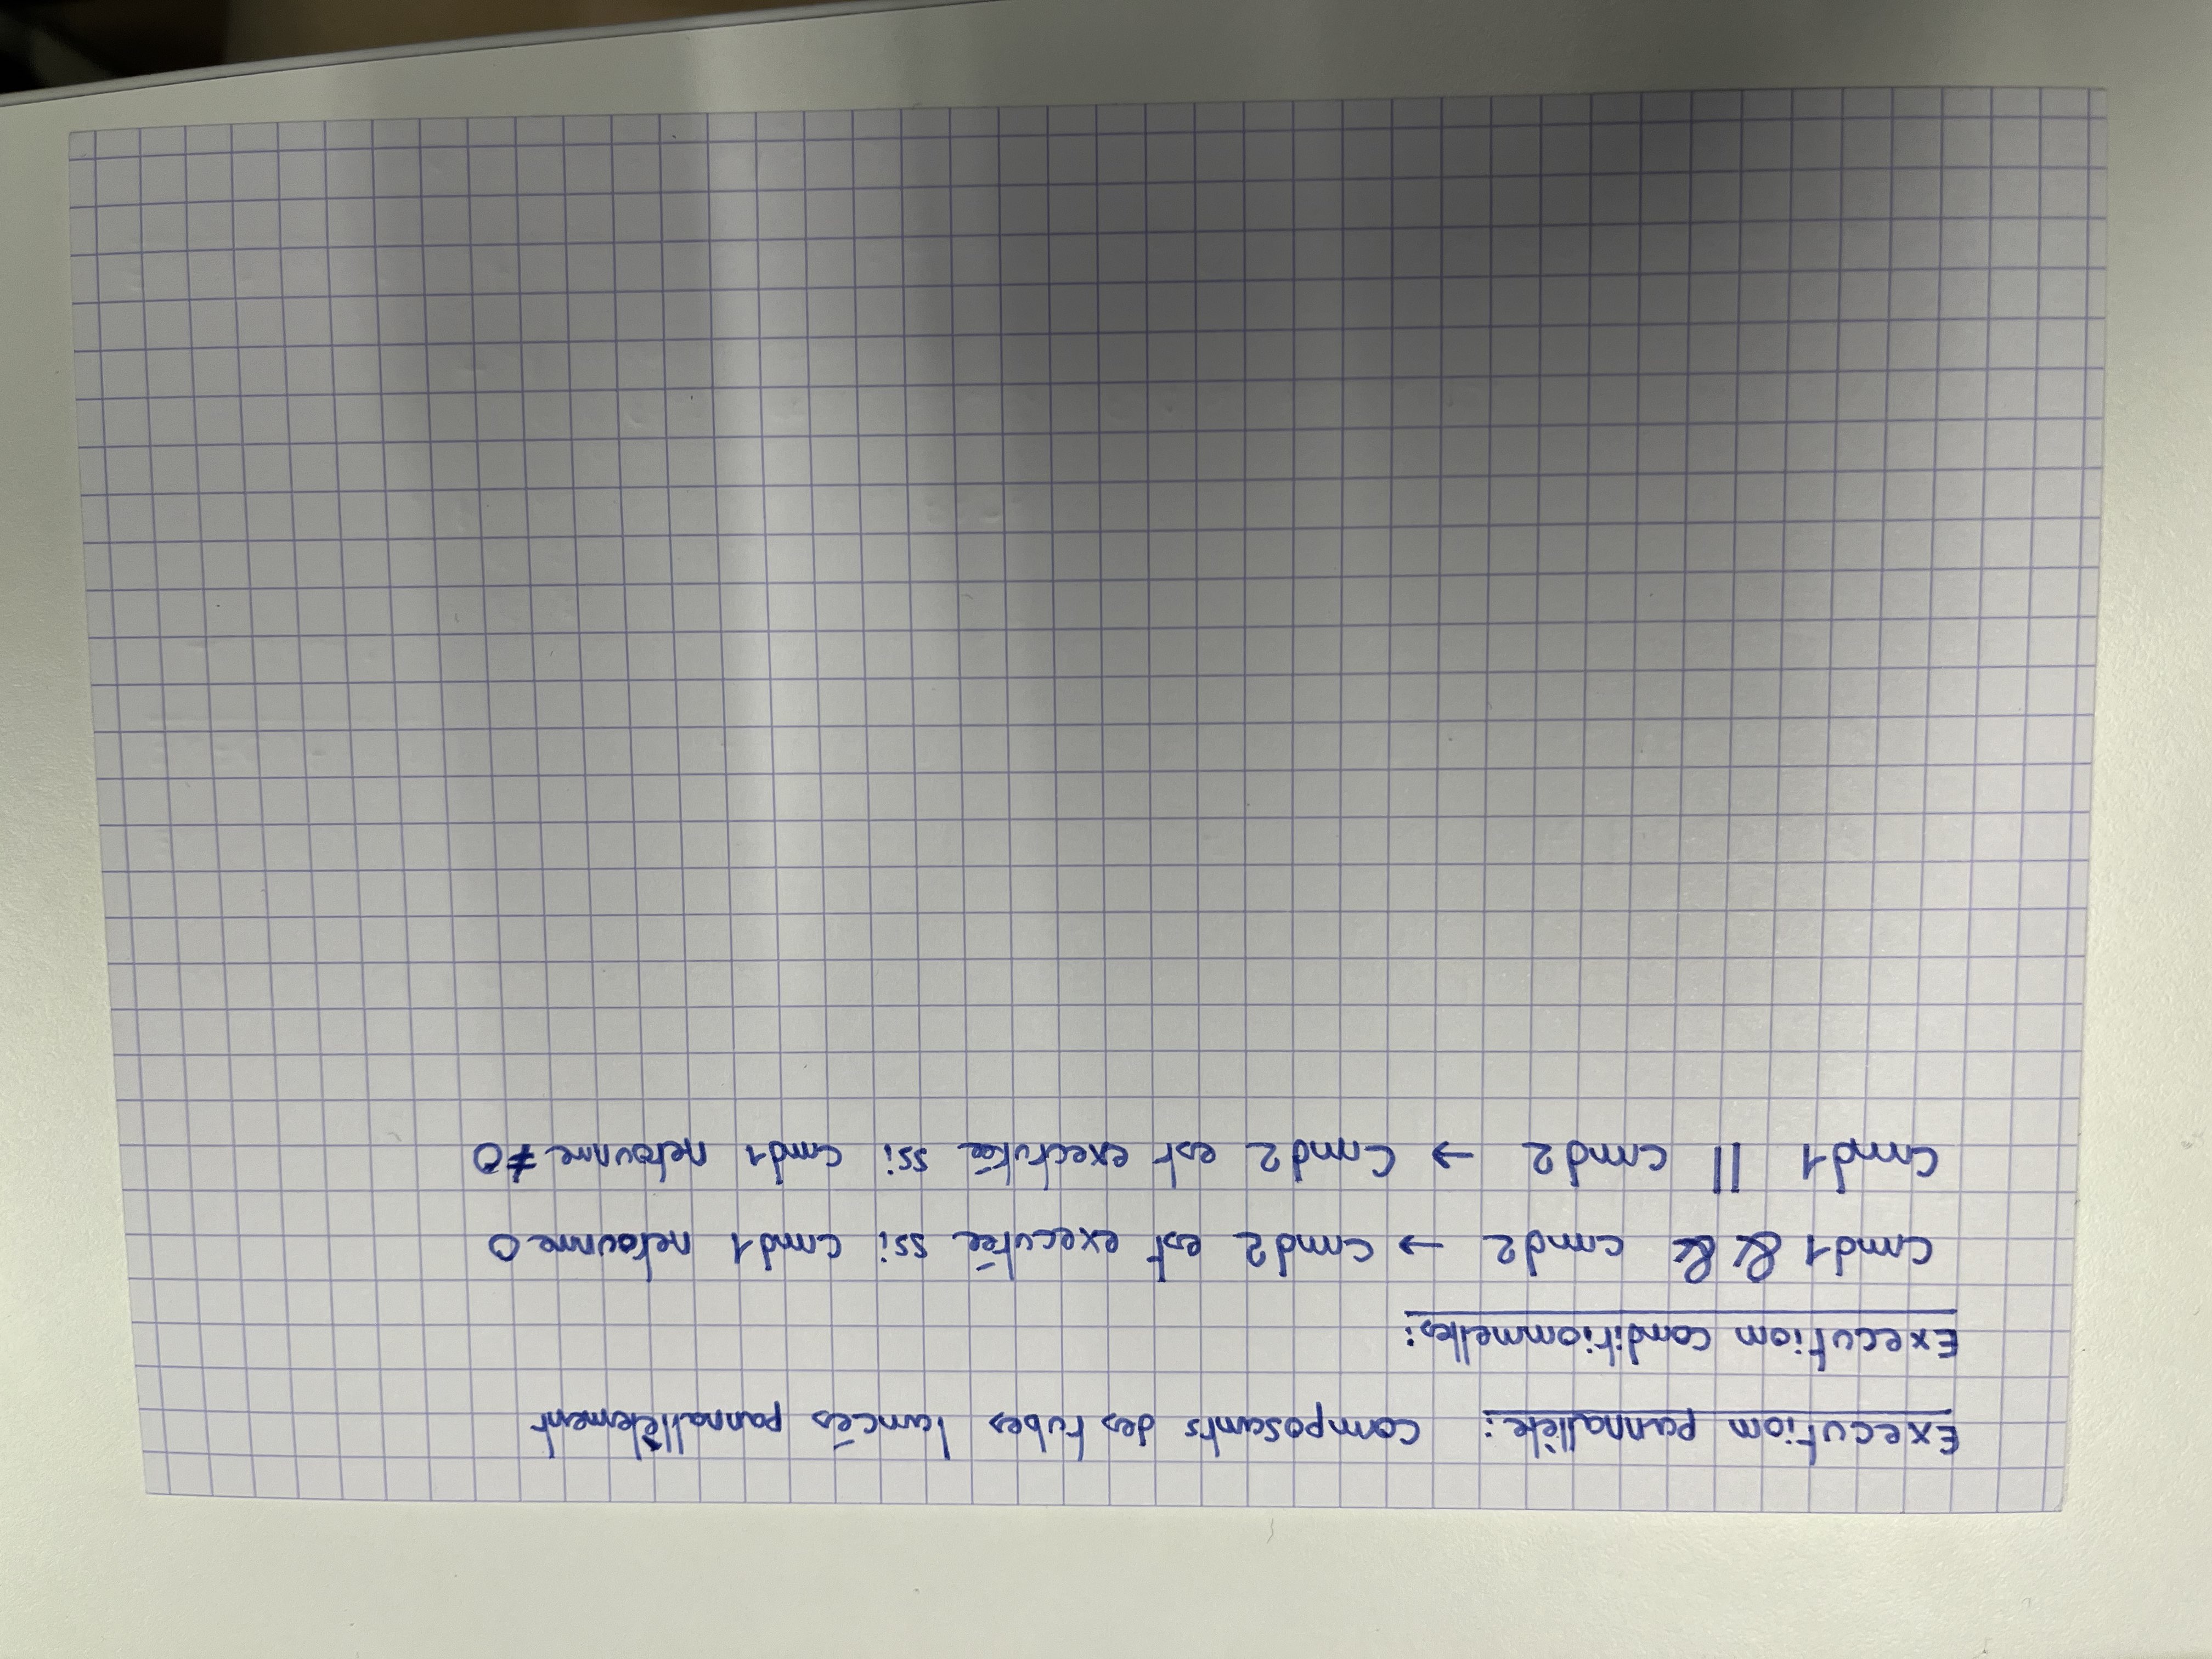 Execution parrallèle: composants des tubes lancés parrallèlement
Execution conditionnelles:
cmd1 && cmd2 → cmd2 est executée ssi cmd1 retourne 0
cmd1 || cmd2 → cmd2 est exectutée ssi cmd1 retourne ≠0